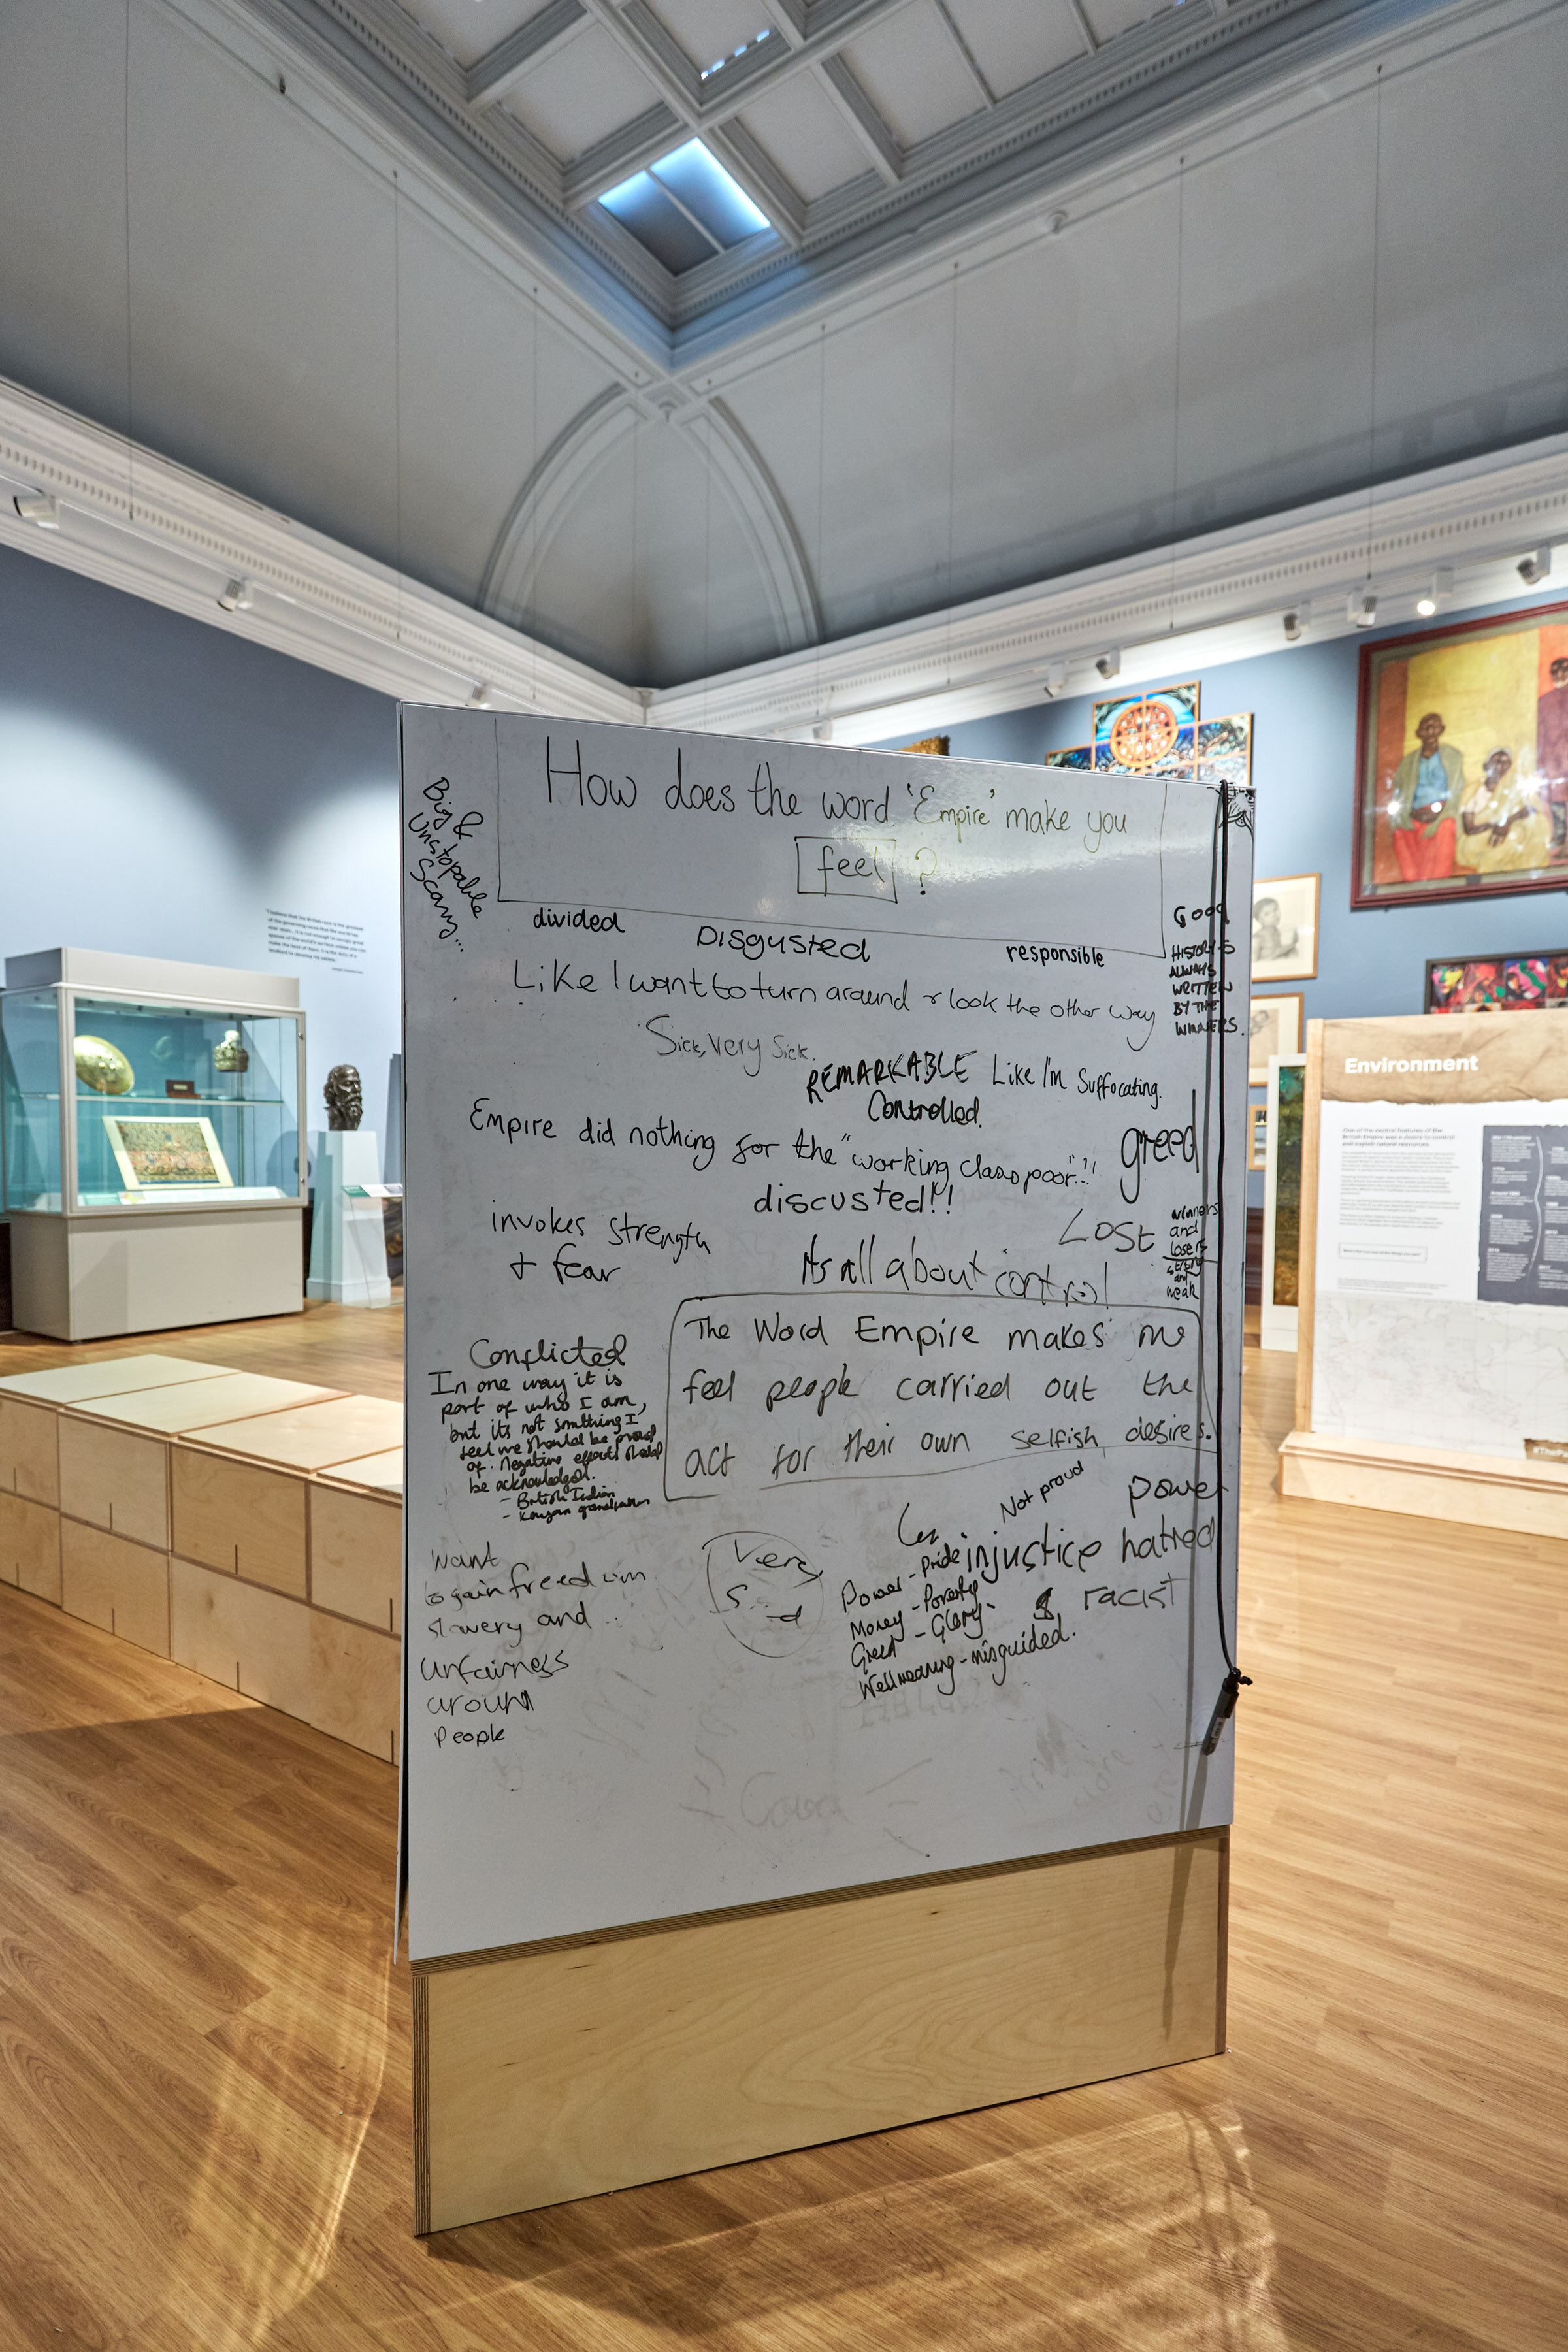 How does the word 'Empire' make you
feel ?
Big &
Unstopable
Scary...
divided
Disgusted
responsible
Good
HISTORY IS
ALWAYS
WRITTEN
BY THE
WINNERS.
Like I want to turn around & look the other way
Sick, Very Sick.
REMARKABLE
Like I'm Suffocating.
Controlled.
Empire did nothing for the "working class poor"!!
greed
discusted!!
invokes strength
+ fear
Lost
winners
and
losers
strong
and
weak
Its all about control
The Word Empire makes me
feel people carried out the
act for their own selfish desires.
Conflicted
In one way it is
part of who I am,
but its not somthing I
feel we should be proud
of. Negative effects should
be acknowledged.
- British Indian
- Kenyan grandparents
Not proud
power
injustice hatred
racist
Power - Pride
Money - Poverty
Greed - Glory
Wellmeaning - misguided.
Very
want
to gain freedom
slavery and
unfairness
around
people
Environment
One of the central features of the
British Empire was a desire to control
and exploit natural resources.